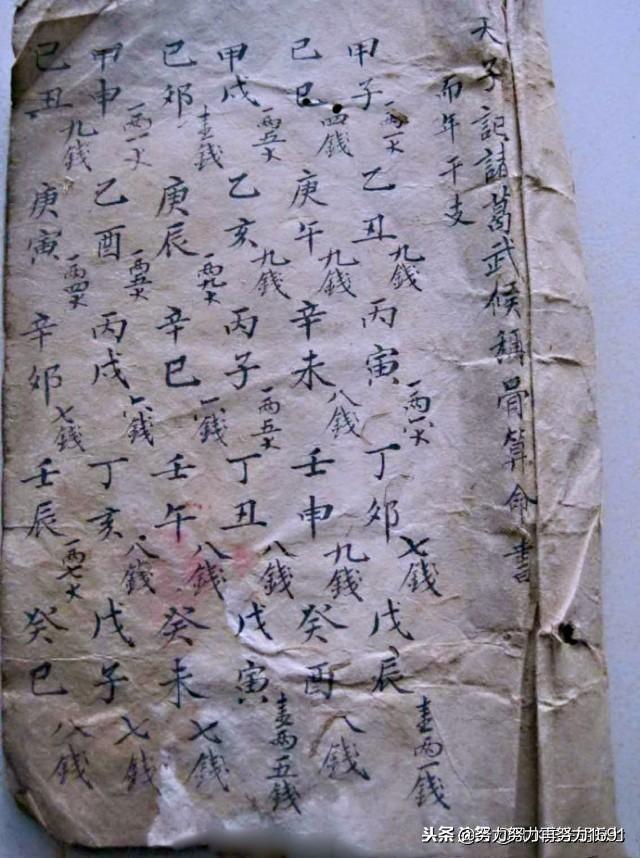 天子記諸葛武候稱骨算命書
而年干支
甲子 一两一大 乙丑 九錢 丙寅 丁卯 七錢 戊辰 壹两一錢
己巳 四錢 庚午 九錢 辛未 八錢 壬申 九錢 癸酉 八錢
甲戌 一两五大 乙亥 九錢 丙子 一两五大 丁丑 八錢 戊寅 壹两五錢
己卯 壹錢 庚辰 一两九大 辛巳 錢 壬午 八錢 癸未 七錢
甲申 一两一大 乙酉 一两五大 丙戌 六錢 丁亥 八錢 戊子 七錢
己丑 九錢 庚寅 一两四大 辛卯 七錢 壬辰 一两七大 癸巳 八錢
头条 @努力努力再努力